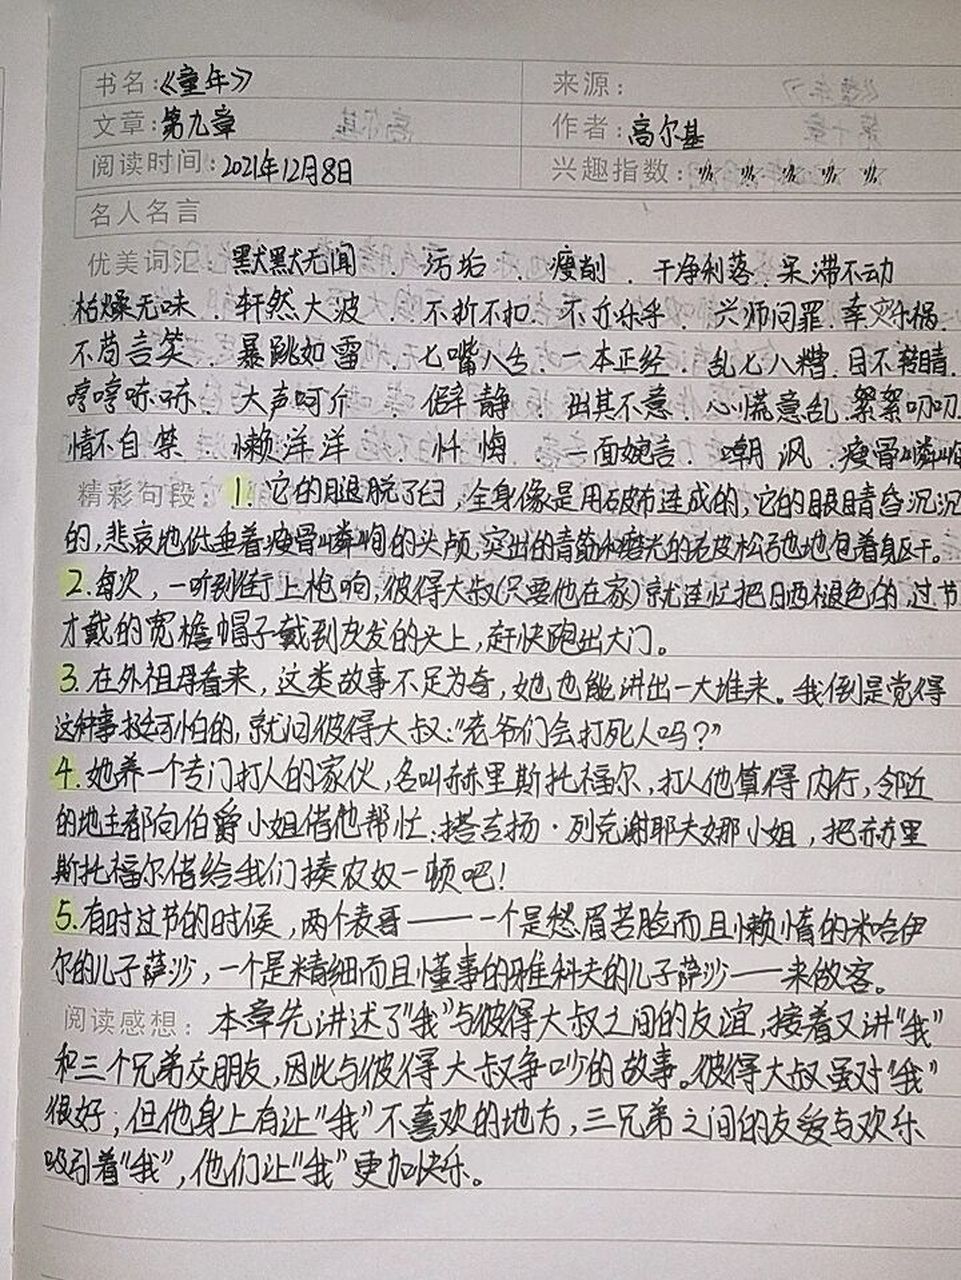 书名:《童年》 来源:
文章:第九章 作者:高尔基
阅读时间:2021年12月8日 兴趣指数:
名人名言
优美词汇:默默无闻 . 污垢 . 瘦削 . 干净利落 呆滞不动
枯燥无味 . 轩然大波 . 不折不扣. 不亦乐乎 . 兴师问罪. 幸灾乐祸.
不苟言笑 . 暴跳如雷 . 七嘴八舌 . 一本正经 . 乱七八糟. 目不转睛.
哼哼哧哧 . 大声呵斥 . 僻静 . 出其不意 . 心慌意乱. 絮絮叨叨
情不自禁 . 懒洋洋 . 忏悔 . 一面婉言 . 嘲讽 . 瘦骨嶙峋
精彩句段: 1. 它的腿脱了臼,全身像是用破布连成的,它的眼睛昏沉沉
的,悲哀地低垂着瘦骨嶙峋的头颅,突出的青筋和磨光的老皮松弛地包着身躯干。
2.每次,一听到街上枪响,彼得大叔(只要他在家)就连忙把日晒褪色的,过节
才戴的宽檐帽子戴到灰发的头上,赶快跑出大门。
3.在外祖母看来,这类故事不足为奇,她也能讲出一大堆来。我倒是觉得
这种事挺可怕的,就问彼得大叔:“老爷们会打死人吗?”
4.她养一个专门打人的家伙,名叫赫里斯托福尔,打人他算得内行,邻近
的地主都向伯爵小姐借他帮忙:塔吉扬·列克谢耶夫娜小姐,把赫里
斯托福尔借给我们揍农奴一顿吧!
5.有时过节的时候,两个表哥——一个是愁眉苦脸而且懒惰的米哈伊
尔的儿子萨沙,一个是精细而且懂事的雅科夫的儿子萨沙——来做客。
阅读感想: 本章先讲述了“我”与彼得大叔之间的友谊,接着又讲“我”
和三个兄弟交朋友,因此与彼得大叔争吵的故事。彼得大叔虽对“我”
很好;但他身上有让“我”不喜欢的地方,三兄弟之间的友爱与欢乐
吸引着“我”,他们让“我”更加快乐。